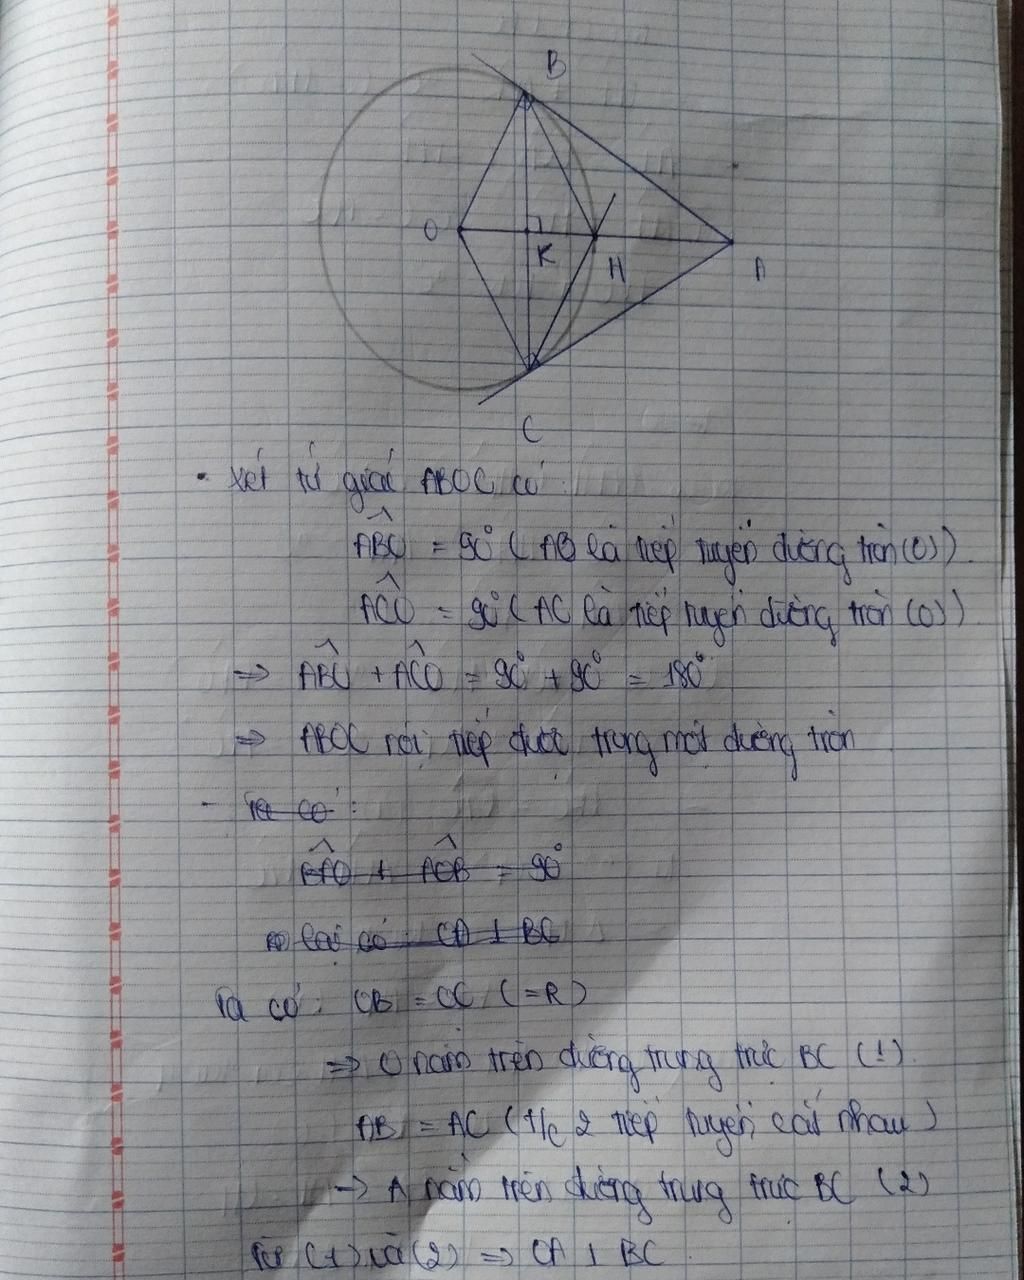 B
O
K
H
A
C
• Xét tứ giác ABOC có:
ABO = 90° (AB là tiếp tuyến đường tròn (O)).
ACO = 90° (AC là tiếp tuyến đường tròn (O))
=> ABO + ACO = 90° + 90° = 180°
=> ABOC nội tiếp được trong một đường tròn
- Ta có:
BAO + AOB = 90°
lại có OA ⊥ BC
Ta có: OB = OC (=R)
=> O nằm trên đường trung trực BC (1).
AB = AC (t/c 2 tiếp tuyến cắt nhau)
-> A nằm trên đường trung trực BC (2)
Từ (1) và (2) => OA ⊥ BC.